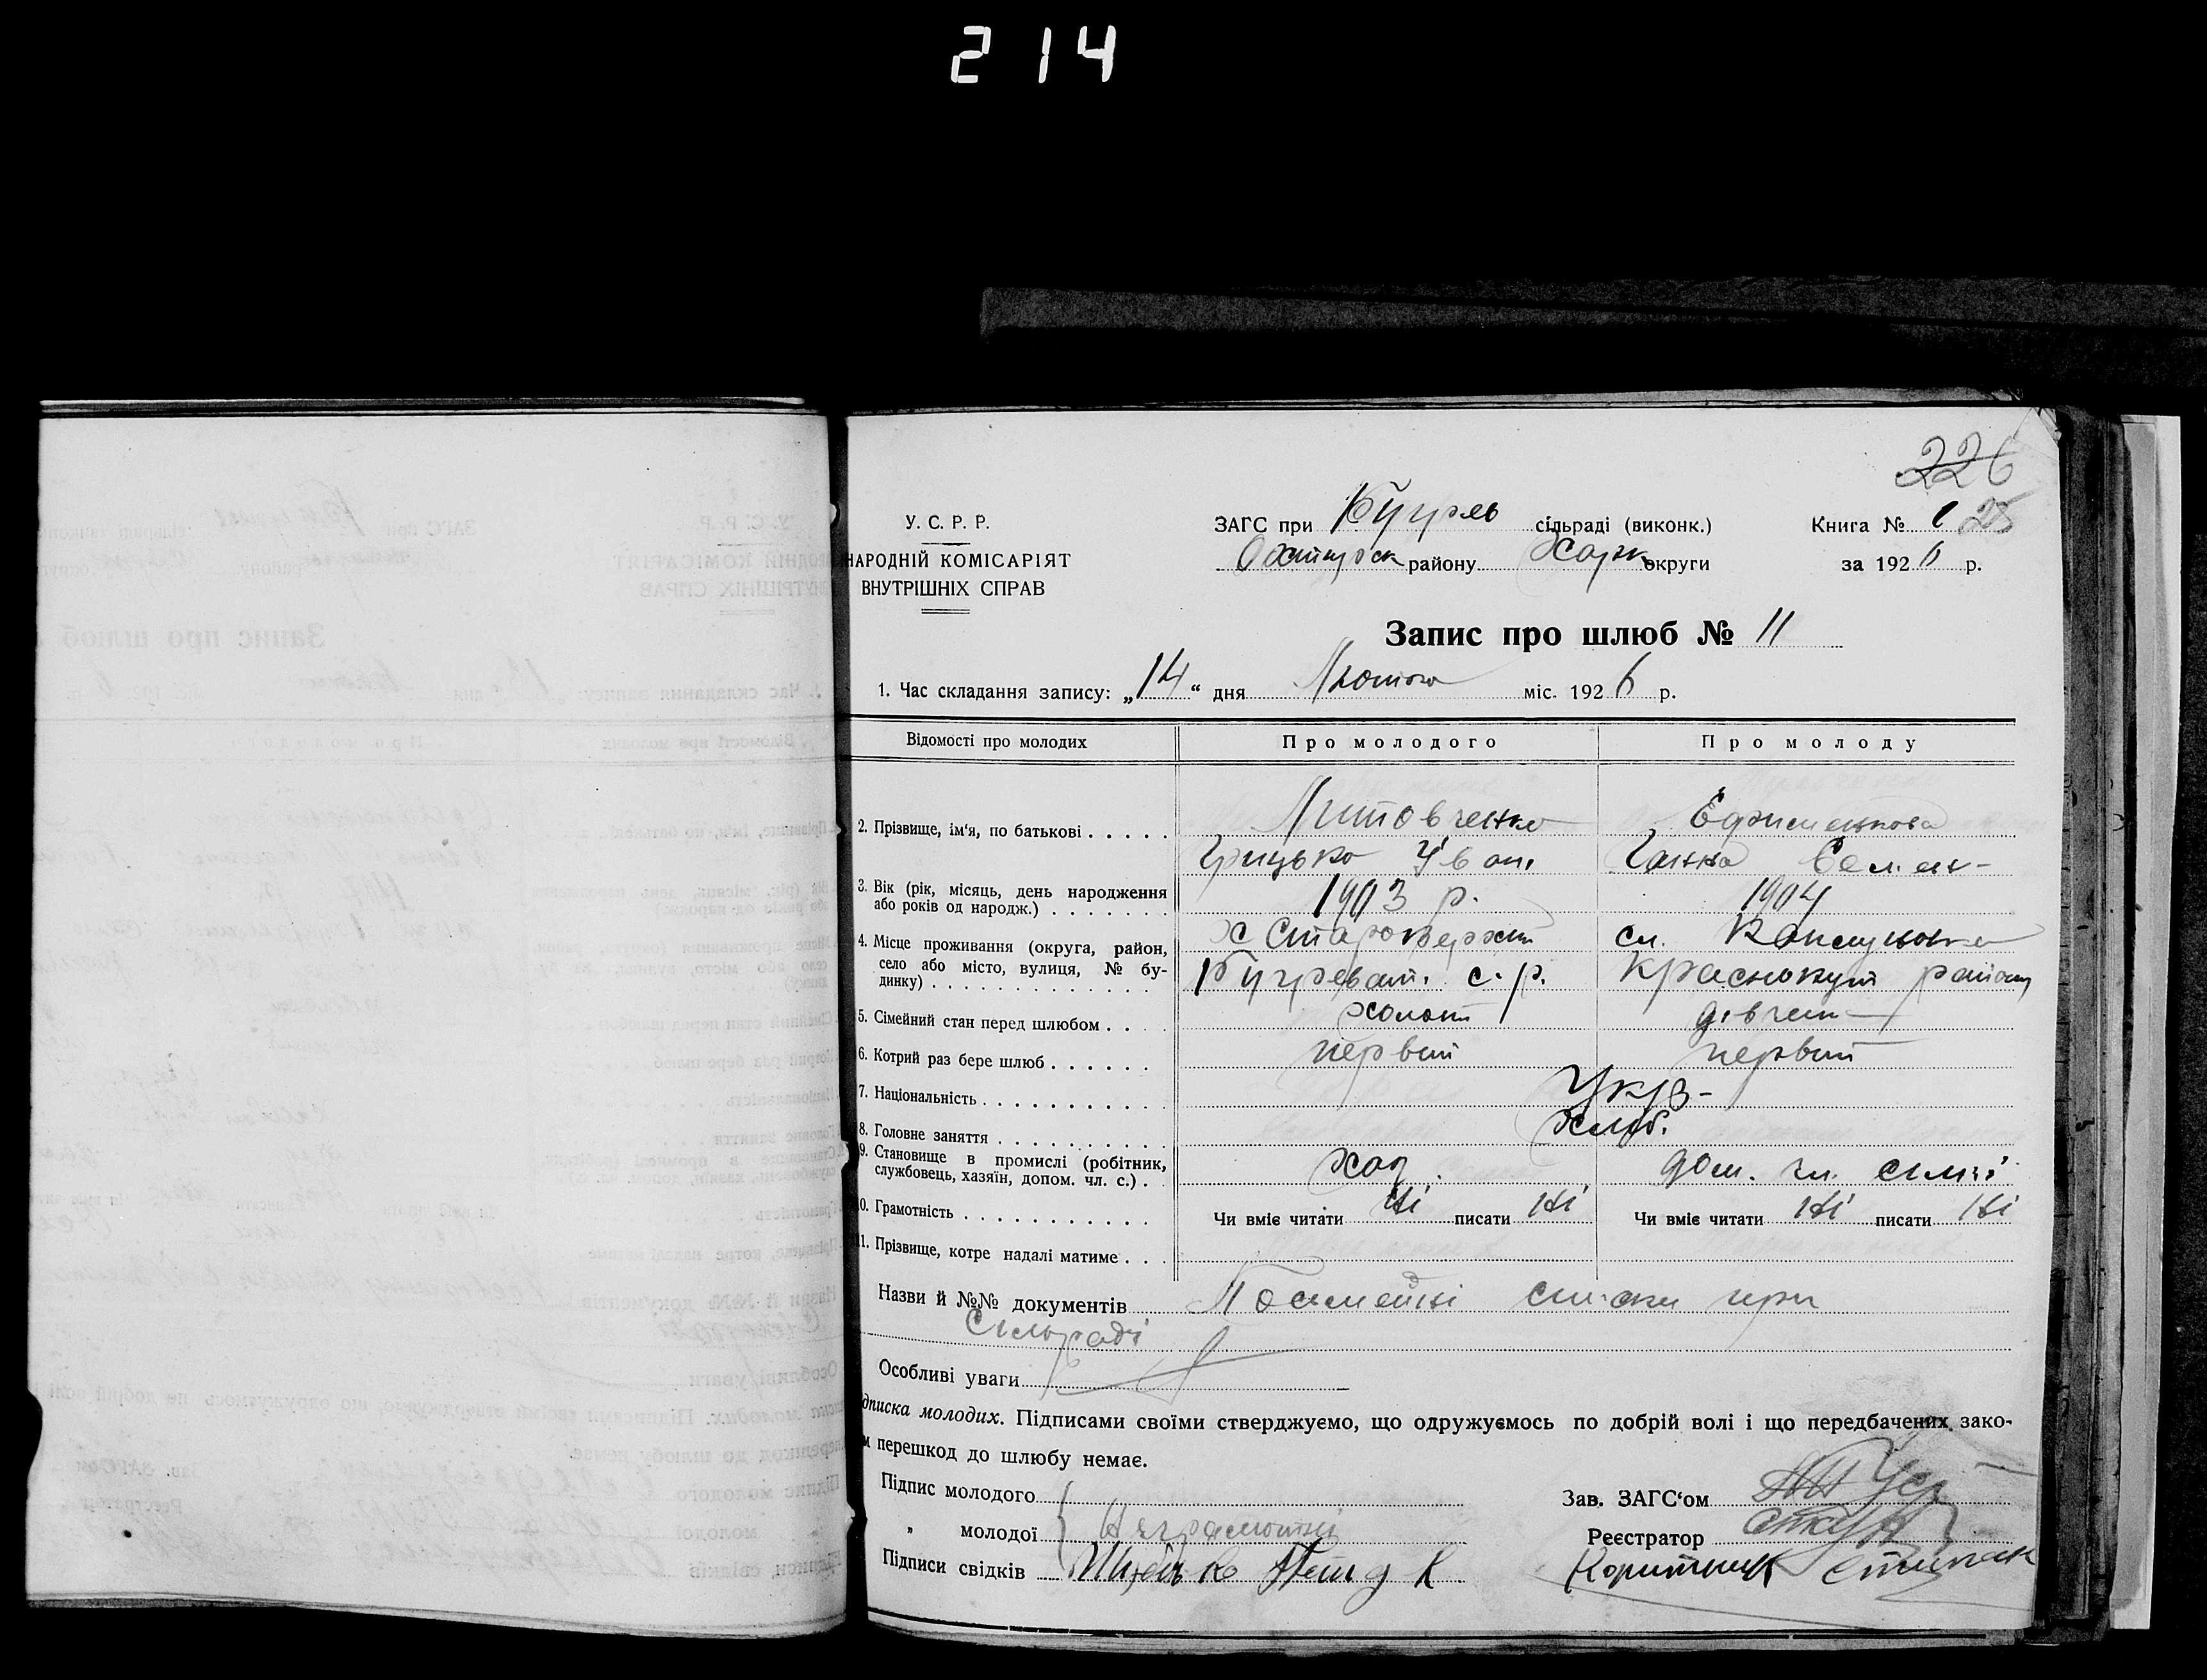 214
226
У. С. Р. Р.
НАРОДНІЙ КОМІСАРІЯТ
ВНУТРІШНІХ СПРАВ
ЗАГС при Бугрев сільраді (виконк.)
Охтирск району Харк округи
Книга № 1 25
за 1926 р.
Запис про шлюб № 11
1. Час складання запису: „14“ дня Лютого міс. 1926 р.
Відомості про молодих Про молодого Про молоду
2. Прізвище, ім'я, по батькові . . . . . Литовченко Ефименкова
Грицько Іван. Ганна Семен-
3. Вік (рік, місяць, день народження 1903 р. 1904
або років од народж.) . . . . . . .
4. Місце проживання (округа, район, х сл.
село або місто, вулиця, № бу- Бугреват. с.р. Краснокут району
динку) . . . . . . . . . . . . .
5. Сімейний стан перед шлюбом . . . . холост дівчин
6. Котрий раз бере шлюб . . . . . . первий первий
7. Національність . . . . . . . . . . . Укр-
8. Головне заняття . . . . . . . . . . Хліб.
9. Становище в промислі (робітник, хаз. дом. чл. сімї
службовець, хазяїн, допом. чл. с.) . .
10. Грамотність . . . . . . . . . . . Чи вміє читати ні писати ні Чи вміє читати ні писати ні
11. Прізвище, котре надалі матиме . . .
Назви й №№ документів Посімейні списки при
Сільраді
Особливі уваги
дписка молодих. Підписами своїми стверджуємо, що одружуємось по добрій волі і що передбачених зако-
м перешкод до шлюбу немає.
Підпис молодого
„ молодої Неграмотні
Підписи свідків
Зав. ЗАГС'ом
Реєстратор